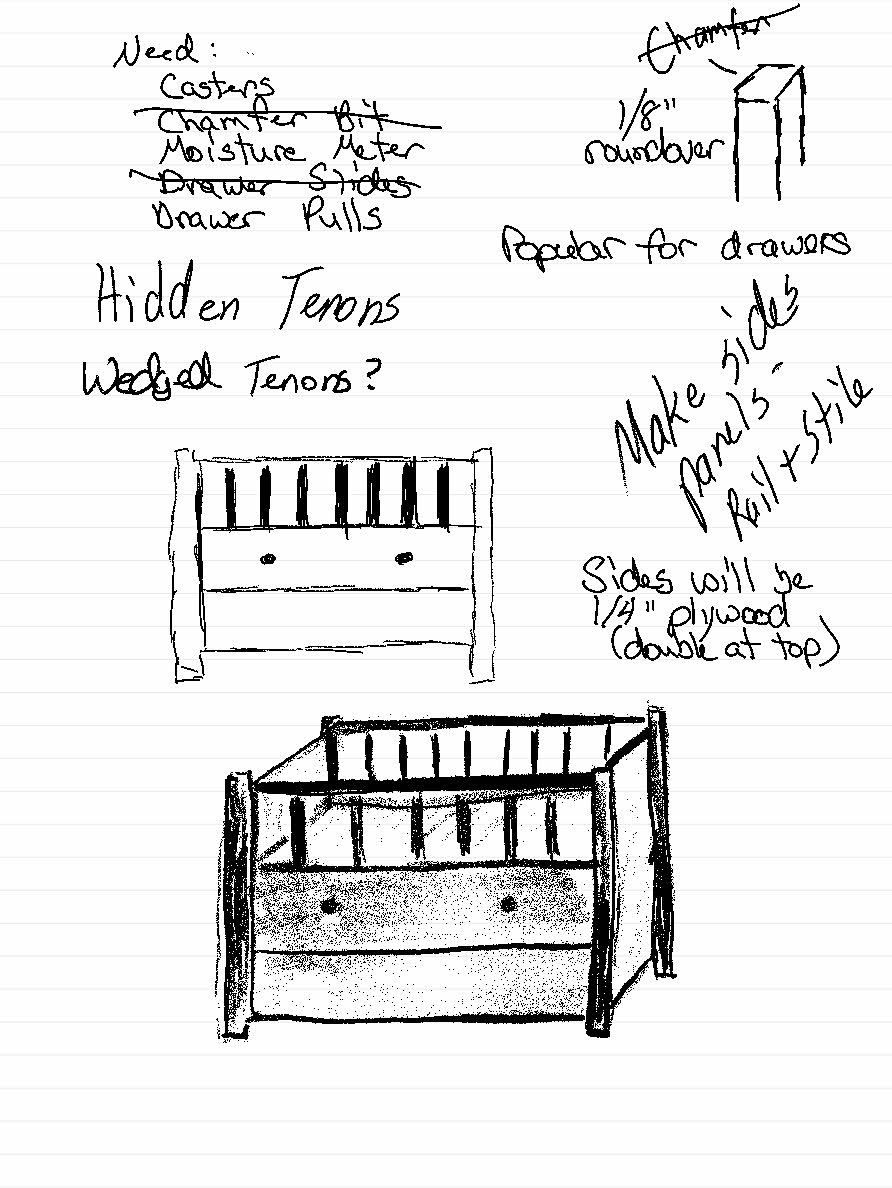 Need:
Casters
Chamfer Bit
Moisture Meter
Drawer Slides
Drawer Pulls
Chamfer
1/8"
roundover
Popular for drawers
Hidden Tenons
Wedged Tenons?
Make sides
panels -
Rail + stile
Sides will be
1/4" plywood
(double at top)